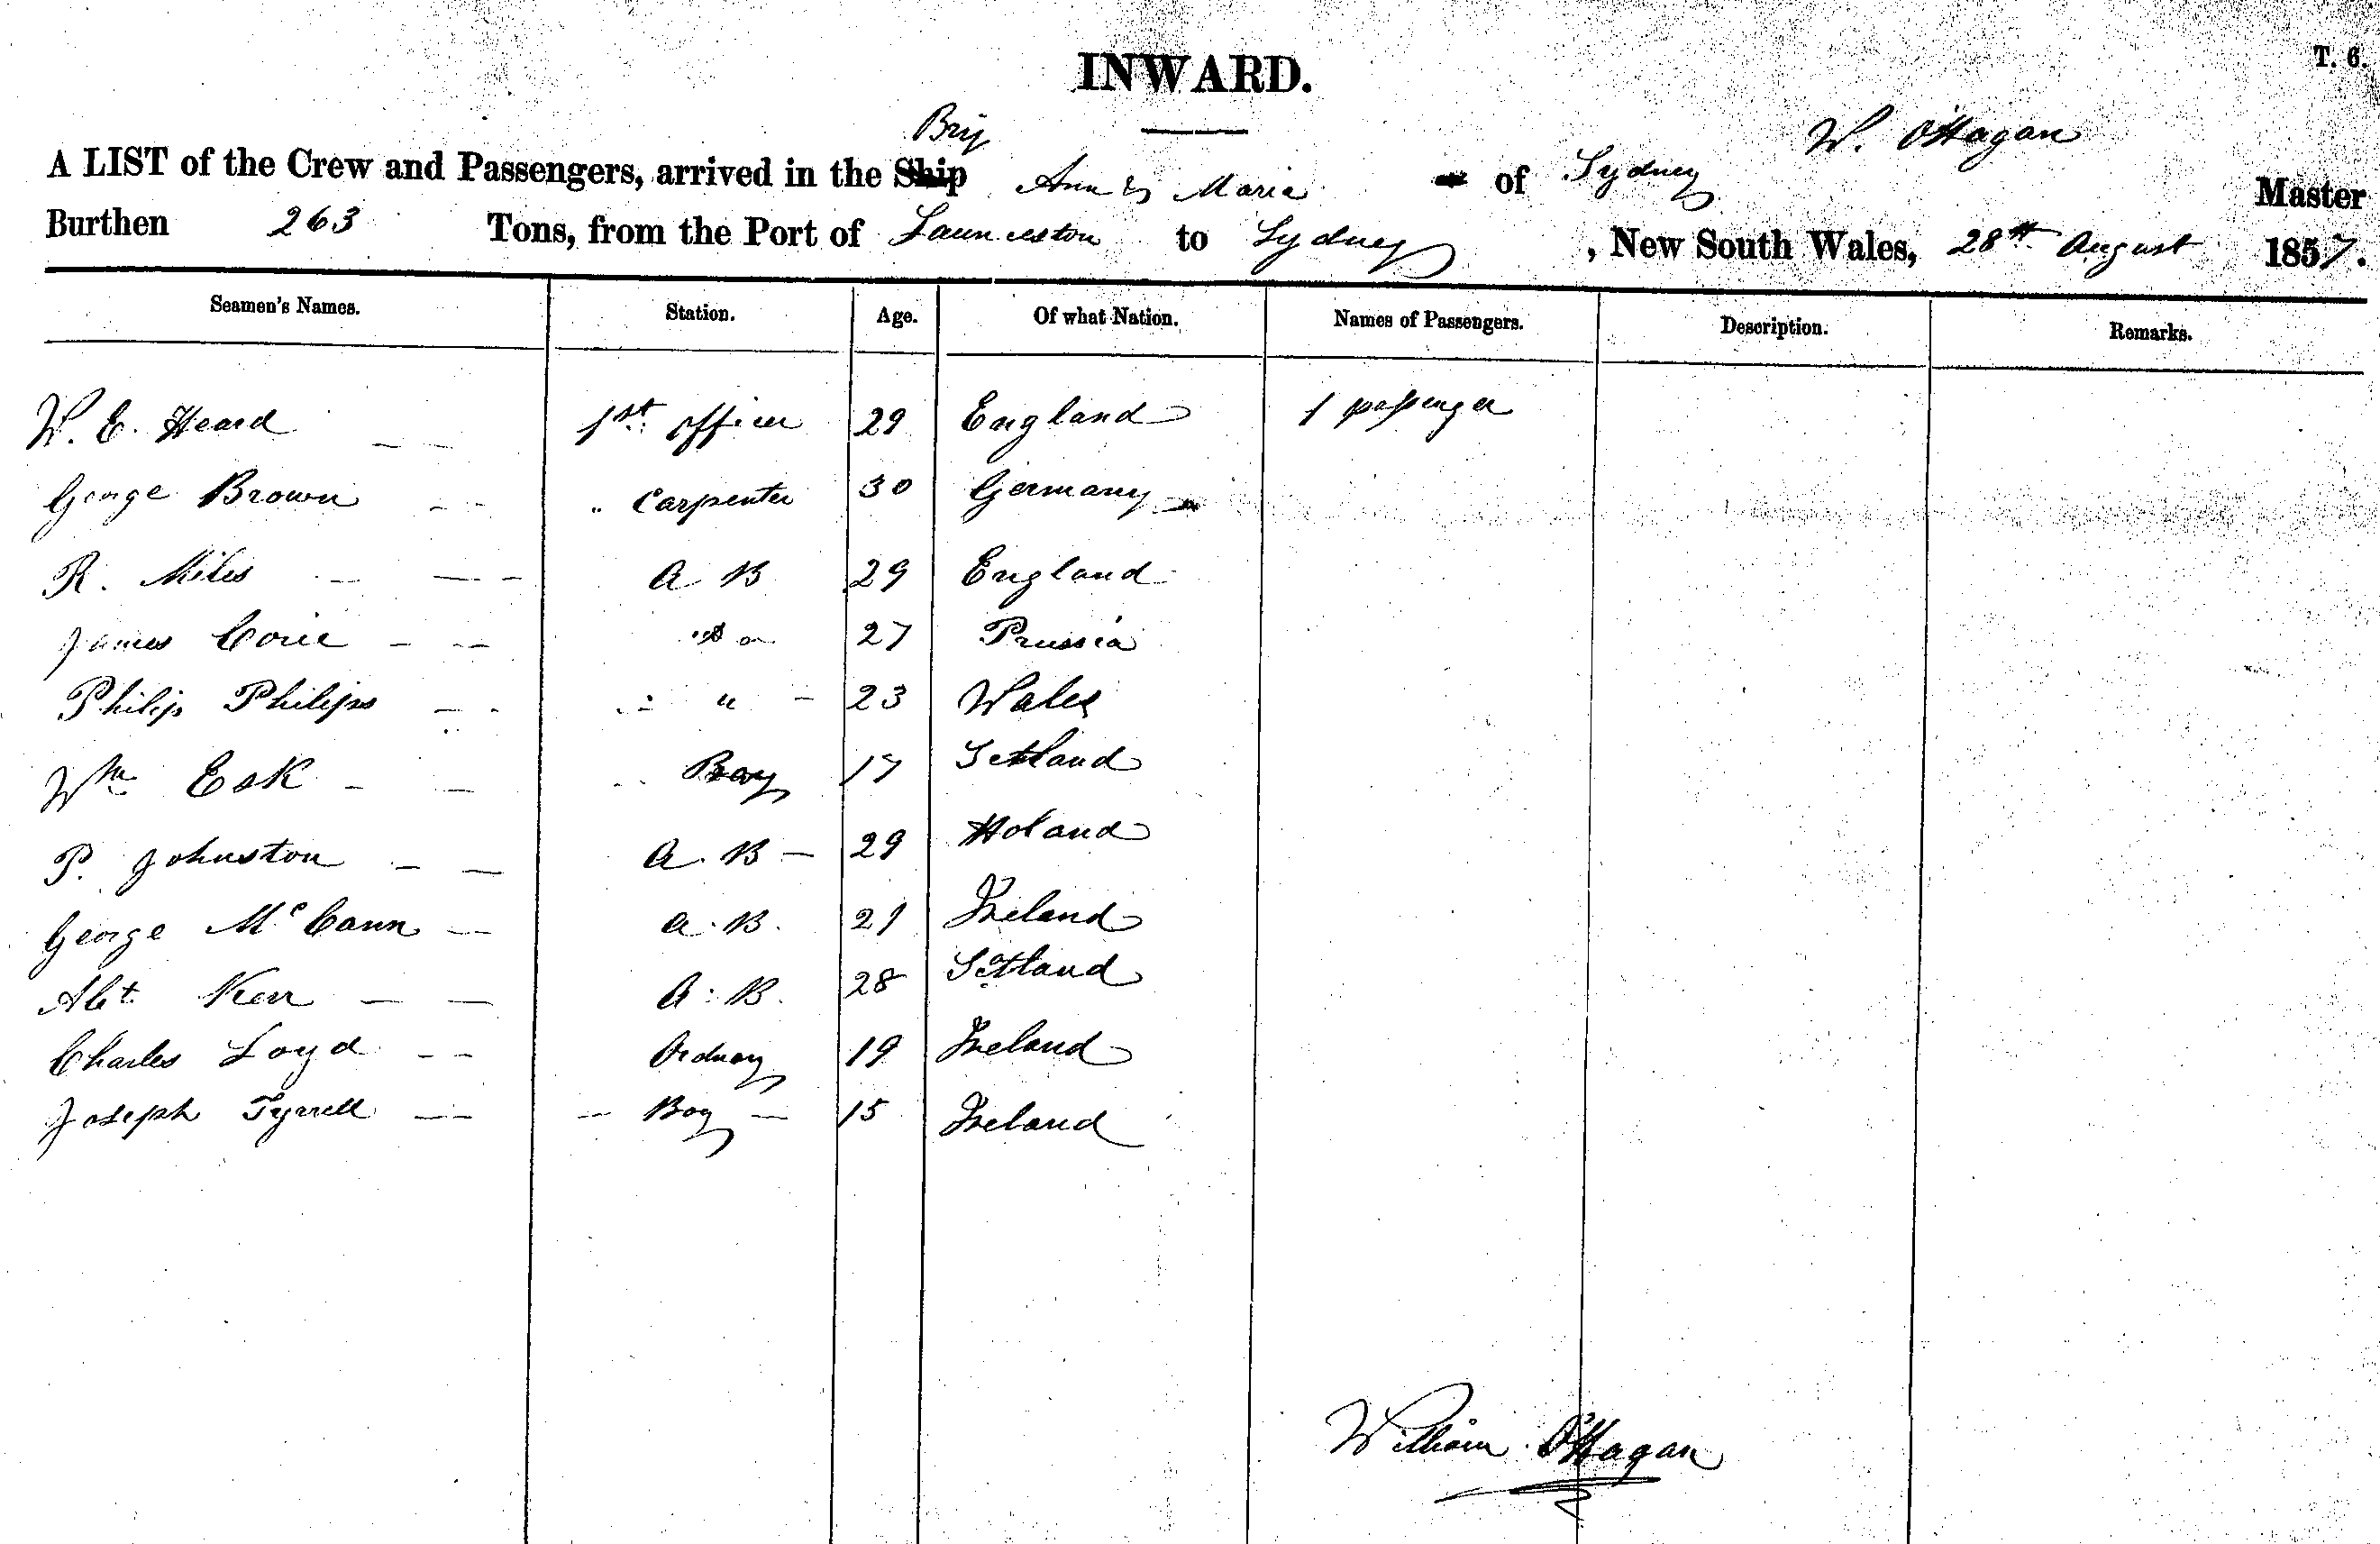 INWARD.
T. 6.
Brig
A LIST of the Crew and Passengers, arrived in the Ship Ann & Maria of Sydney W. O'Hagan Master
Burthen 263 Tons, from the Port of Launceston to Sydney, New South Wales, 28th August 1857.
Seamen's Names. Station. Age. Of what Nation. Names of Passengers. Description. Remarks.
W. E. Heard 1st officer 29 England 1 passenger
George Brown " Carpenter 30 Germany
R. Miles A B 29 England
James 27 Prussia
Philip Philips " 23 Wales
Wm Esk Boy 17
P. Johnston A. B 29 Holand
George McCann A. B. 21 Ireland
Kerr A. B. 28 Scotland
Charles Loyd 19 Ireland
Joseph Tyrrell Boy 15 Ireland
William O'Hagan